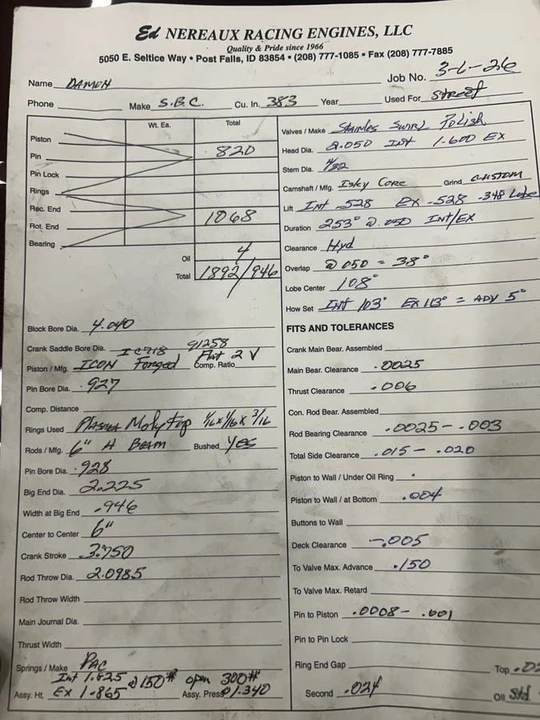 Ed NEREAUX RACING ENGINES, LLC
Quality & Pride since 1966
5050 E. Seltice Way • Post Falls, ID 83854 • (208) 777-1085 • Fax (208) 777-7885
Name DAMON Job No. 3-6-26
Phone Make S.B.C. Cu. In. 383 Year Used For STREET
Wt. Ea. Total
Piston
Pin 820
Pin Lock
Rings
Rec. End
Rot. End 1068
Bearing
Oil 4
Total 1892/946
Block Bore Dia. 4.040
Crank Saddle Bore Dia. IC718 91258
Piston / Mfg. ICON Forged Comp. Ratio Flat 2 V
Pin Bore Dia. .927
Comp. Distance
Rings Used Plasma Moly top 1/16 x 1/16 x 3/16
Rods / Mfg. 6" H Beam Bushed YES
Pin Bore Dia. .928
Big End Dia. 2.225
Width at Big End .946
Center to Center 6"
Crank Stroke 3.750
Rod Throw Dia. 2.0985
Rod Throw Width
Main Journal Dia.
Thrust Width
Springs / Make PAC
Int 1.825 @ 150# open 300#
Assy. Ht. EX 1.865 Assy. Press @1.340
Valves / Make Stainles Swirl Polish
Head Dia. 2.050 INT 1.600 EX
Stem Dia. 11/32
Camshaft / Mfg. Isky Core Grind CUSTOM
Lift Int .528 EX .528 .348 Lobe
Duration 253° @ .050 INT/EX
Clearance Hyd
Overlap @ 050 = 38°
Lobe Center 108°
How Set Int 103° EX 113° = ADV 5°
FITS AND TOLERANCES
Crank Main Bear. Assembled
Main Bear. Clearance .0025
Thrust Clearance .006
Con. Rod Bear. Assembled
Rod Bearing Clearance .0025 - .003
Total Side Clearance .015 - .020
Piston to Wall / Under Oil Ring
Piston to Wall / at Bottom .004
Buttons to Wall
Deck Clearance -.005
To Valve Max. Advance .150
To Valve Max. Retard
Pin to Piston .0008 - .001
Pin to Pin Lock
Ring End Gap Top .02
Second .024 Oil Std